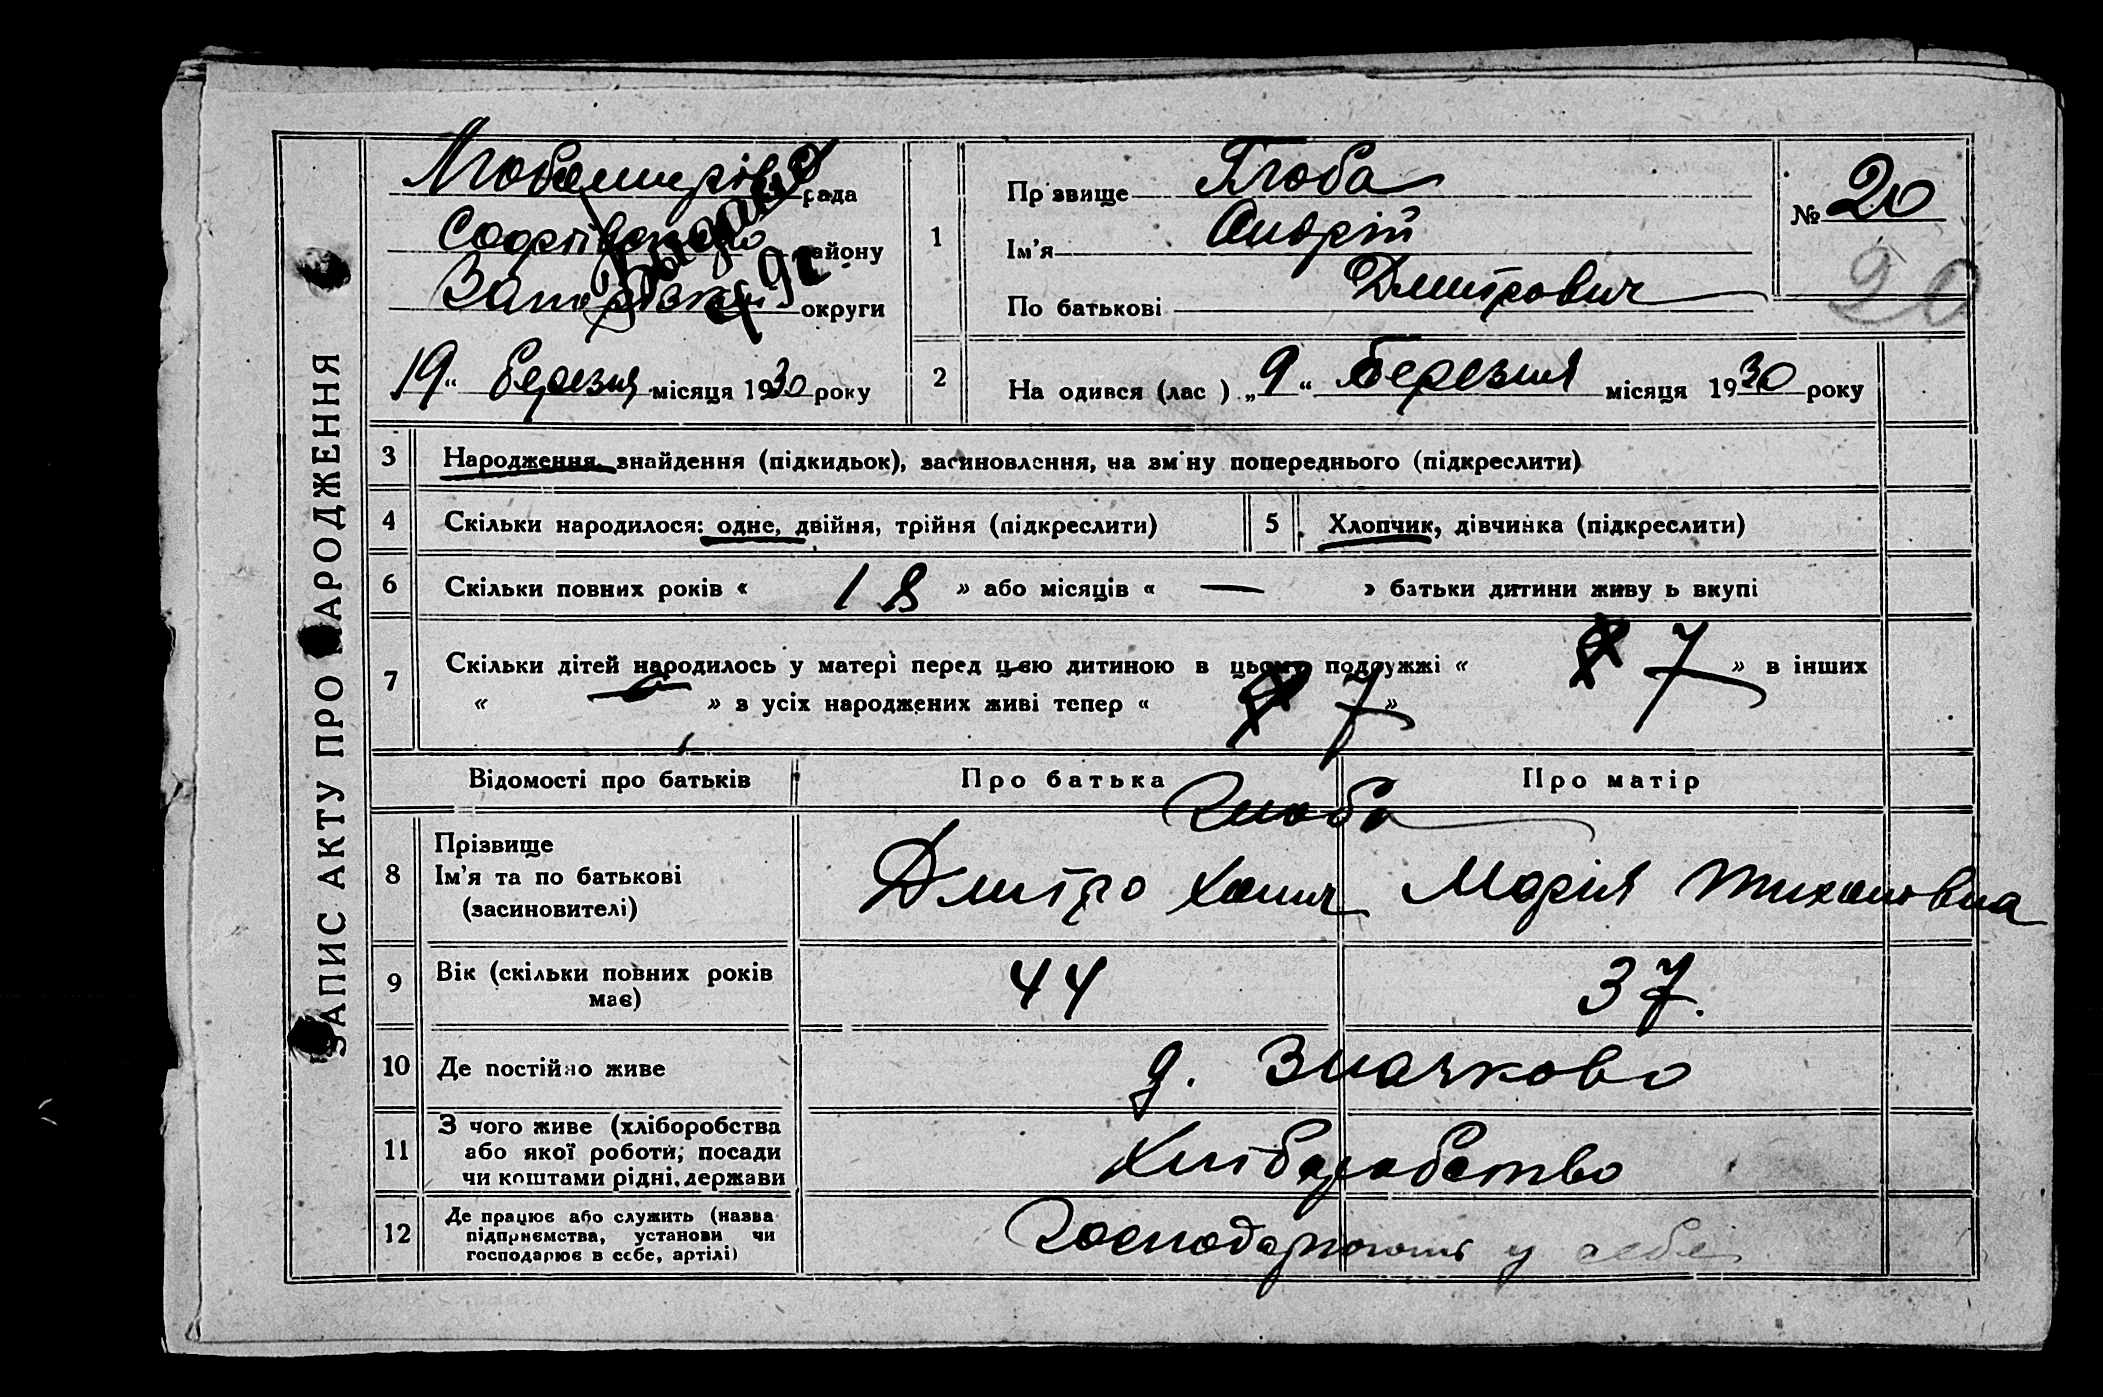 ЗАПИС АКТУ ПРО НАРОДЖЕННЯ
рада
району
округи
19 “ Березня місяця 1930 року
1
Прізвище Глоба
Ім'я Андрій
По батькові Дмитрович
№ 20
20
2
На одився (лас ) „ 9 “ Березня місяця 1930 року
3 Народження, знайдення (підкидьок), засиновлення, на зміну попереднього (підкреслити)
4 Скільки народилося: одне, двійня, трійня (підкреслити)
5 Хлопчик, дівчинка (підкреслити)
6 Скільки повних років « 18 » або місяців « — » батьки дитини живу ь вкупі
7 Скільки дітей народилось у матері перед цією дитиною в цьому подружжі « 7 » в інших
« — » з усіх народжених живі тепер « 7 »
Відомості про батьків Про батька Про матір
Глоба
8 Прізвище
Ім'я та по батькові
(засиновителі)
Дмитро Марія Тихоновна
9 Вік (скільки повних років
має)
44 37.
10 Де постійно живе
д. Значково
11 З чого живе (хліборобства
або якої роботи, посади
чи коштами рідні, держави
Хліборобство
12 Де працює або служить (назва
підприємства, установи чи
господарює в себе, артілі)
Господарюють у себе